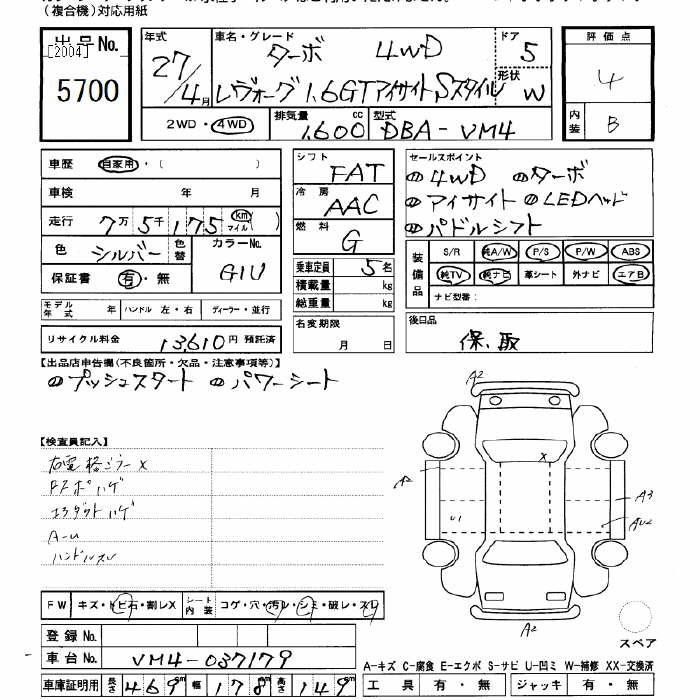 (複合機)対応用紙
出品No.
[2004]
5700
年式 27/4月
車名・グレード ターボ 4WD
レヴォーグ 1.6GTアイサイトSスタイル
ドア 5
形状 W
2WD・4WD
排気量 1,600 cc
型式 DBA-VM4
評価点 4
内装 B
車歴 自家用・( )
車検 年 月
走行 7万5千175 km マイル( )
色 シルバー 色替
カラーNo. G1U
保証書 有・無
モデル年式 年 ハンドル 左・右 ディーラー・並行
リサイクル料金 13,610円 預託済
シフト FAT
冷房 AAC
燃料 G
乗車定員 5名
積載量 kg
総重量 kg
名変期限 月 日
セールスポイント
4WD ターボ
アイサイト LEDヘッド
パドルシフト
装備品 S/R 純A/W P/S P/W ABS
純TV 純ナビ 革シート 外ナビ エアB
ナビ型番:
後日品
保、取
【出品店申告欄(不良箇所・欠品・注意事項等)】
プッシュスタート パワーシート
【検査員記入】
右電格ミラーX
ハゲ
エラダクトハゲ
A-U
ハンドルスレ
FW キズ・トビ石・割レX
シート内装 コゲ・穴・汚レ・シミ・破レ・スレ
登録No.
車台No. VM4-037179
車庫証明用 長さ 469cm 幅 178cm 高さ 149cm
A2
A2
A3
AU2
U1
X
A2
スペア
A-キズ C-腐食 E-エクボ S-サビ U-凹ミ W-補修 XX-交換済
工具 有・無 ジャッキ 有・無